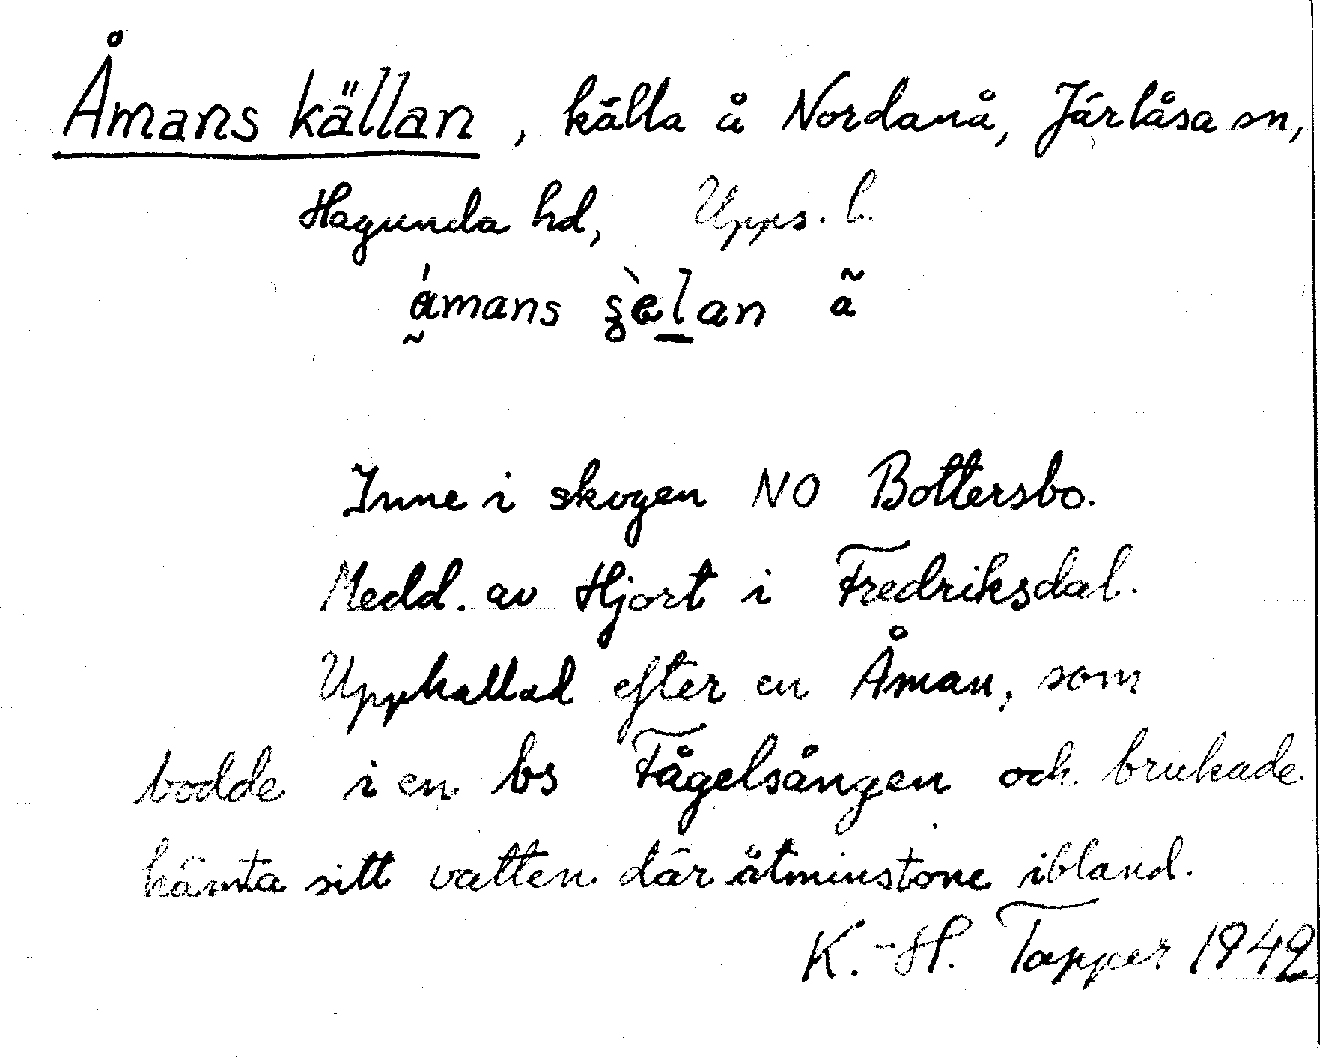 Åmans källan, källa å Nordanå, Järlåsa sn,
Hagunda hd, Upps. l.
åmans
Inne i skogen NO Bottersbo.
Medd. av Hjort i Fredriksdal.
Uppkallad efter en Åman, som
bodde i en bs Fågelsången och brukade
hämta sitt vatten där åtminstone ibland.
K.-H. Tapper 1942